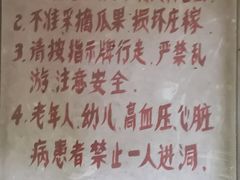 2.不准采摘瓜果,损坏庄稼
3.请按指示牌行走,严禁乱
游,注意安全.
4.老年人、幼儿、高血压、心脏
病患者禁止一人进洞.